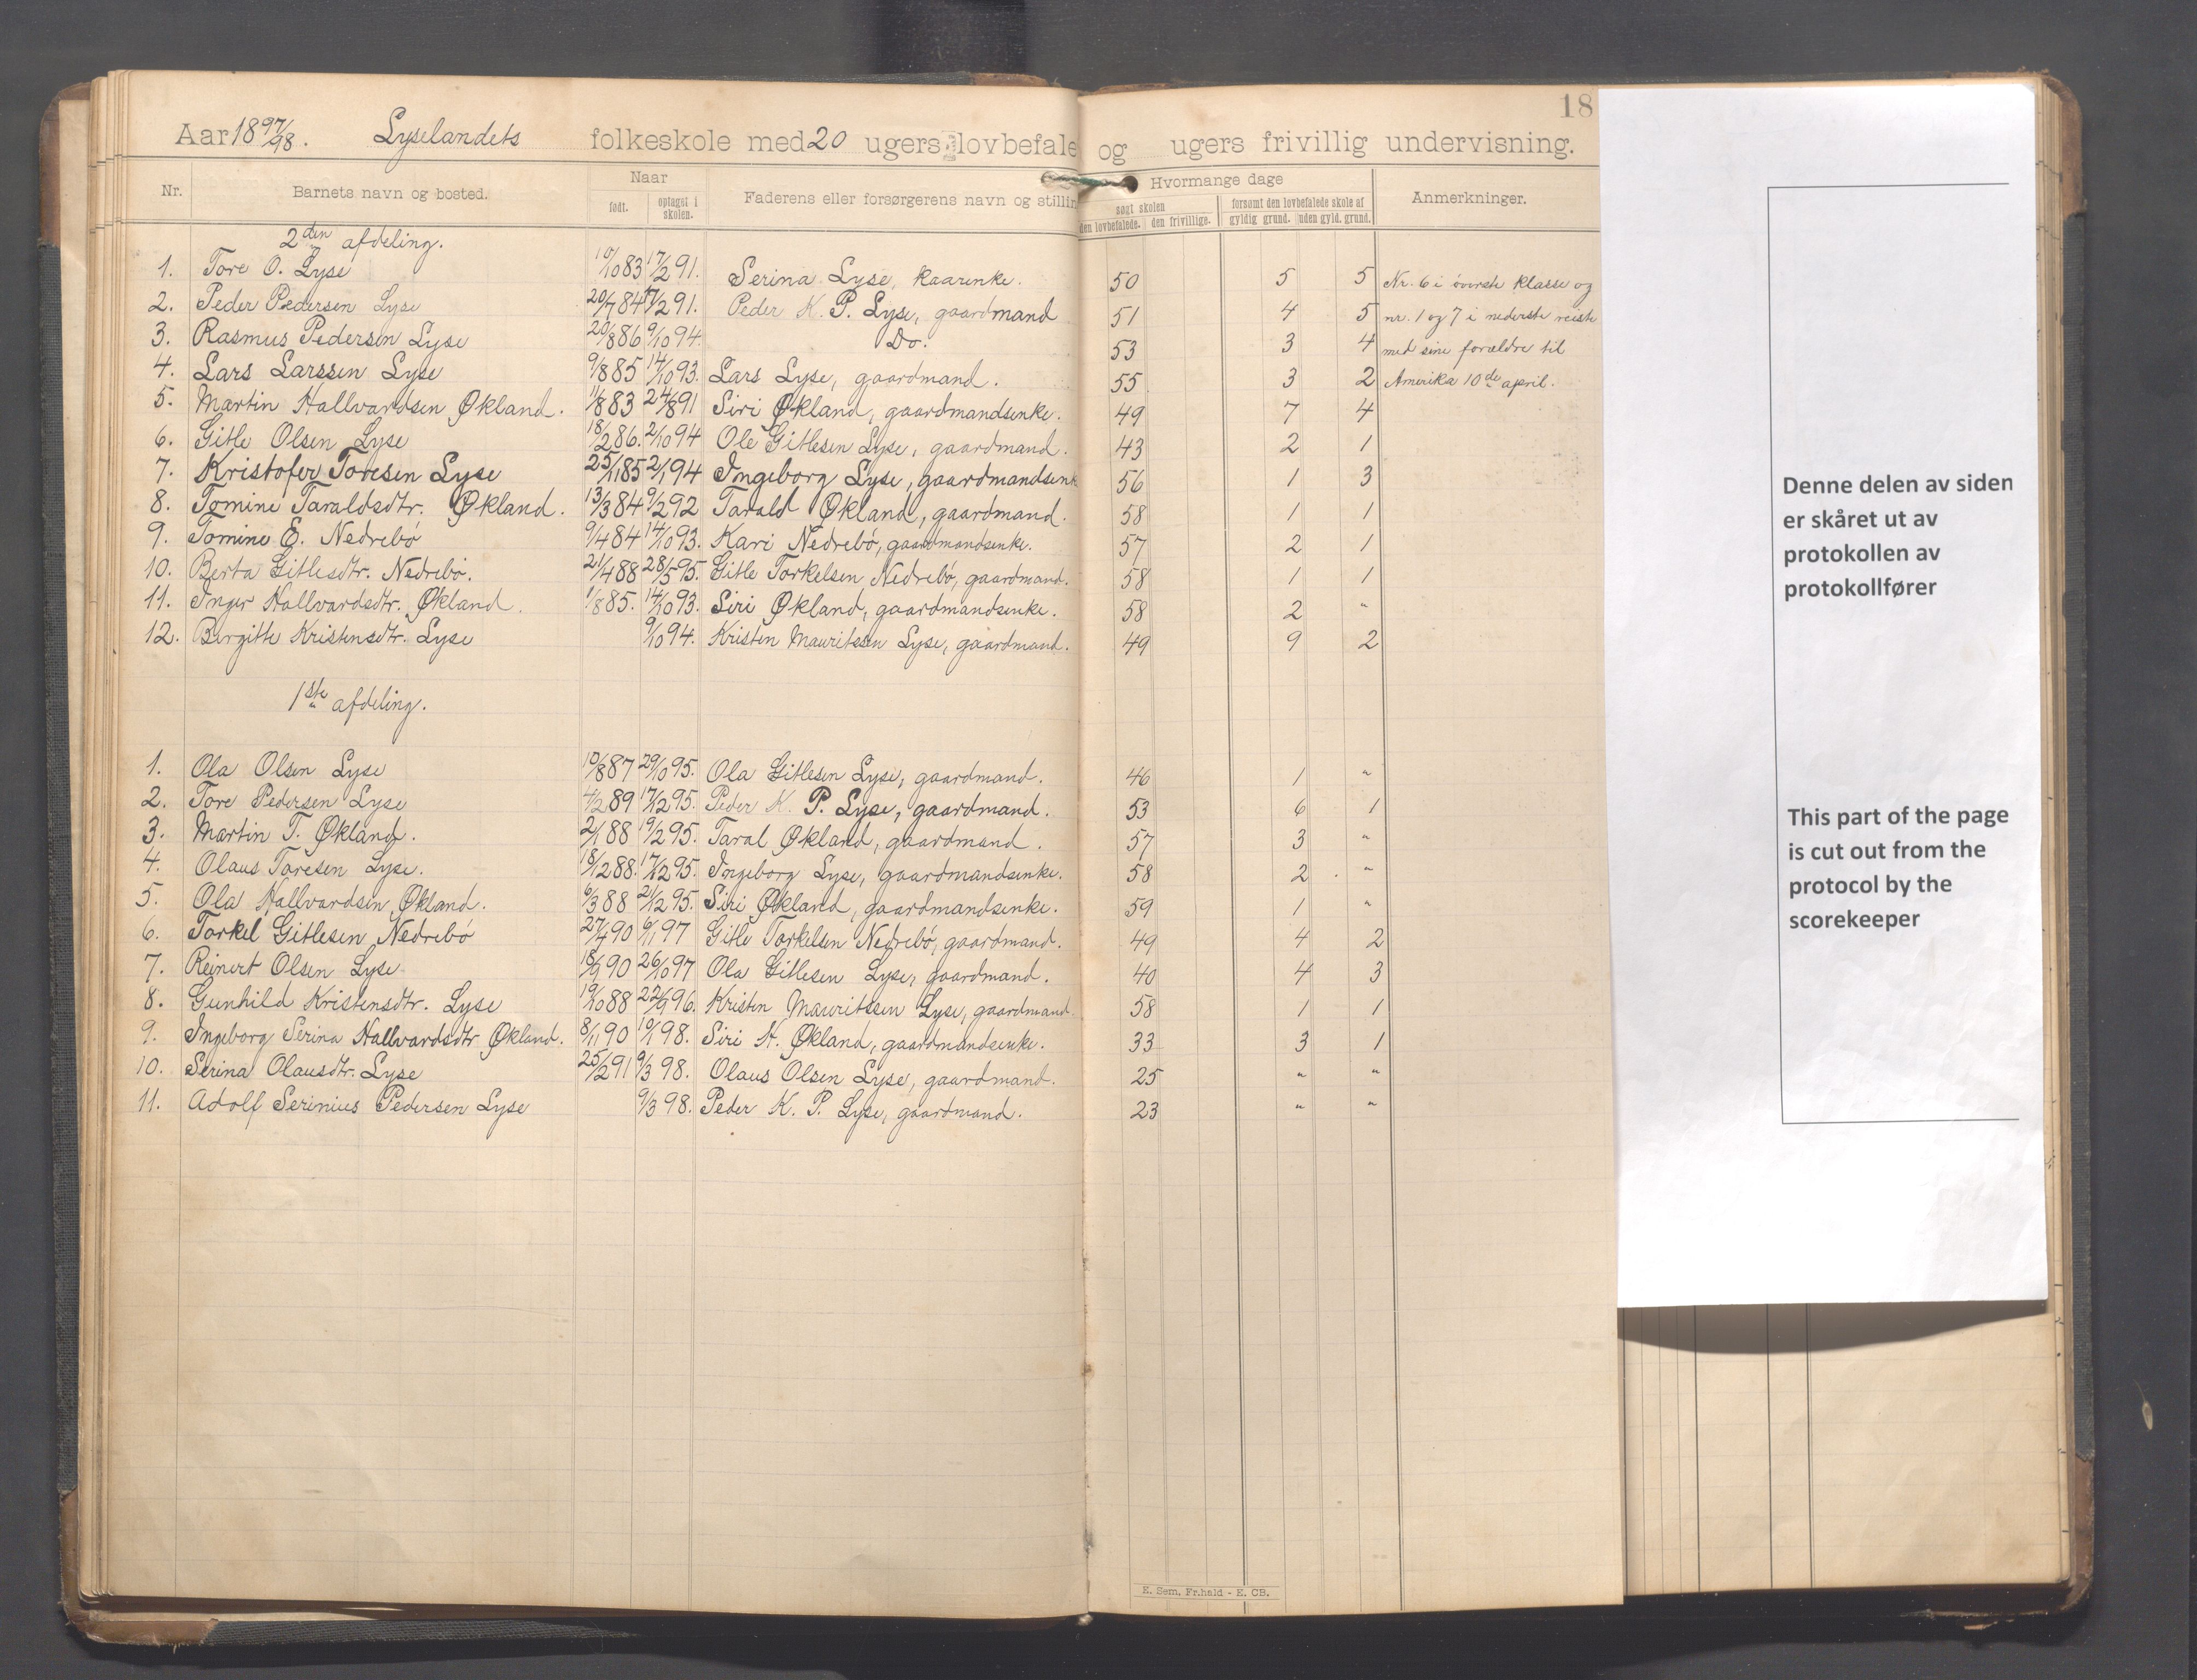 18
Aar 1897/98. Lyselandets folkeskole med 20 ugers lovbefale og ugers frivillig undervisning.
Nr. Barnets navn og bosted. Naar født. optaget i skolen. Faderens eller forsørgerens navn og stillin Hvormange dage søgt skolen den lovbefalede. den frivillige. forsømt den lovbefalede skole af gyldig grund. uden gyld. grund. Anmerkninger.
2den afdeling.
1. Tore O. Lyse 10/10 83 17/2 91. Serina Lyse, kaarenke. 50 5 5 Nr. 6 i øverste klasse og
2. Peder Pedersen Lyse 20/7 84 17/2 91. Peder K. P. Lyse, gaardmand 51 4 5 nr. 1 og 7 i nederste reiste
3. Rasmus Pedersen Lyse 20/8 86 9/10 94. Do. 53 3 4 med sine forældre til
4. Lars Larssen Lyse 9/8 85 14/10 93. Lars Lyse, gaardmand. 55 3 2 Amerika 10de april.
5. Martin Hallvardsen Økland. 11/8 83 24/8 91 Siri Økland, gaardmandsenke. 49 7 4
6. Gitle Olsen Lyse 18/2 86. 2/10 94 Ole Gitlesen Lyse, gaardmand. 43 2 1
7. Kristofer Toresen Lyse 25/11 85 2/1 94 Ingeborg Lyse, gaardmandsenk 56 1 3
8. Tomine Taraldsdtr. Økland. 13/3 84 9/2 92 Tarald Økland, gaardmand. 58 1 1
9. Tomine E. Nedrebø 9/4 84 14/10 93. Kari Nedrebø, gaardmandsenke. 57 2 1
10. Berta Gitlesdtr. Nedrebø. 21/4 88 28/5 95. Gitle Torkelsen Nedrebø, gaardmand. 58 1 1
11. Inger Hallvardsdtr. Økland. 1/8 85. 14/10 93. Siri Økland, gaardmandsenke. 58 2 "
12. Birgitte Kristensdtr. Lyse 9/10 94. Kristen Mauritssen Lyse, gaardmand. 49 9 2
1ste afdeling.
1. Ola Olsen Lyse 10/8 87 29/10 95. Ola Gitlesen Lyse, gaardmand. 46 1 "
2. Tore Pedersen Lyse 4/2 89 17/12 95. Peder K. P. Lyse, gaardmand. 53 6 1
3. Martin T. Økland. 2/1 88 19/2 95. Taral Økland, gaardmand. 57 3 "
4. Olaus Toresen Lyse. 18/12 88. 17/12 95. Ingeborg Lyse, gaardmandsenke. 58 2 "
5. Ola Hallvardsen Økland. 6/3 88 21/12 95. Siri Økland, gaardmandsenke. 59 1 "
6. Torkel Gitlesen Nedrebø 27/4 90 6/1 97 Gitle Torkelsen Nedrebø, gaardmand. 49 4 2
7. Reinert Olsen Lyse 18/9 90 26/10 97 Ola Gitlesen Lyse, gaardmand. 40 4 3
8. Gunhild Kristensdtr. Lyse 19/10 88 22/9 96. Kristen Mauritssen Lyse, gaardmand. 58 1 1
9. Ingeborg Serina Hallvardsdtr Økland. 8/11 90 19/1 98. Siri H. Økland, gaardmandsenke. 33 3 1
10. Serina Olausdtr. Lyse 25/2 91 9/3 98. Olaus Olsen Lyse, gaardmand. 25 " "
11. Adolf Serinius Pedersen Lyse 9/3 98. Peder K. P. Lyse, gaardmand. 23 " "
E. Sem, Fr.hald - E. CB.
Denne delen av siden
er skåret ut av
protokollen av
protokollfører
This part of the page
is cut out from the
protocol by the
scorekeeper